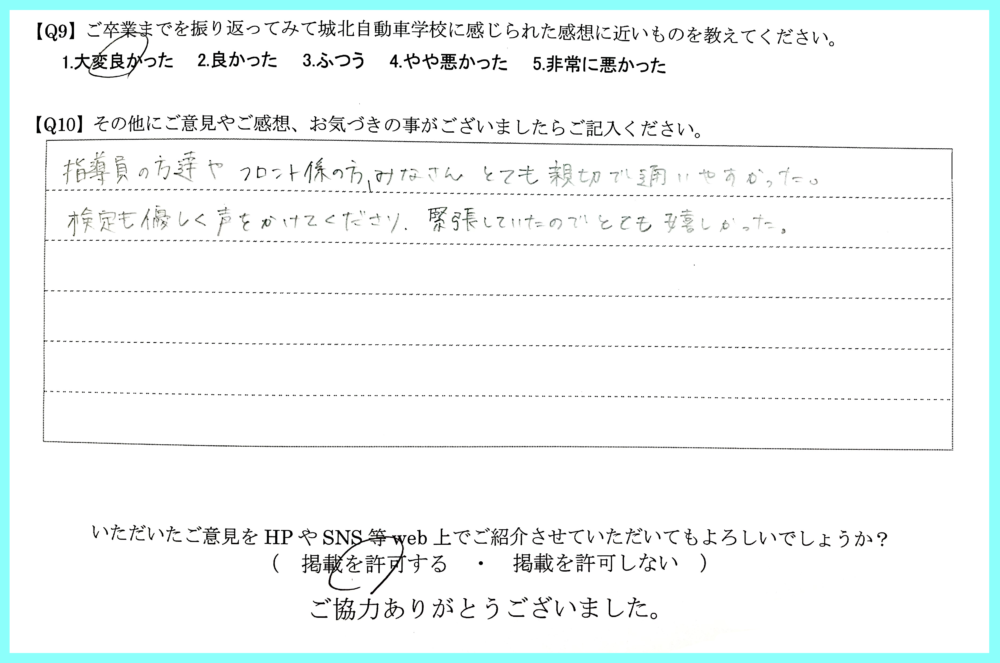 【Q9】ご卒業までを振り返ってみて城北自動車学校に感じられた感想に近いものを教えてください。
1.大変良かった 2.良かった 3.ふつう 4.やや悪かった 5.非常に悪かった
【Q10】その他にご意見やご感想、お気づきの事がございましたらご記入ください。
指導員の方達や フロント係の方、みなさん とても 親切で通いやすかった。
検定も優しく声をかけてくださり、緊張していたのでとても嬉しかった。
いただいたご意見をHPやSNS等web上でご紹介させていただいてもよろしいでしょうか？
（ 掲載を許可する ・ 掲載を許可しない ）
ご協力ありがとうございました。